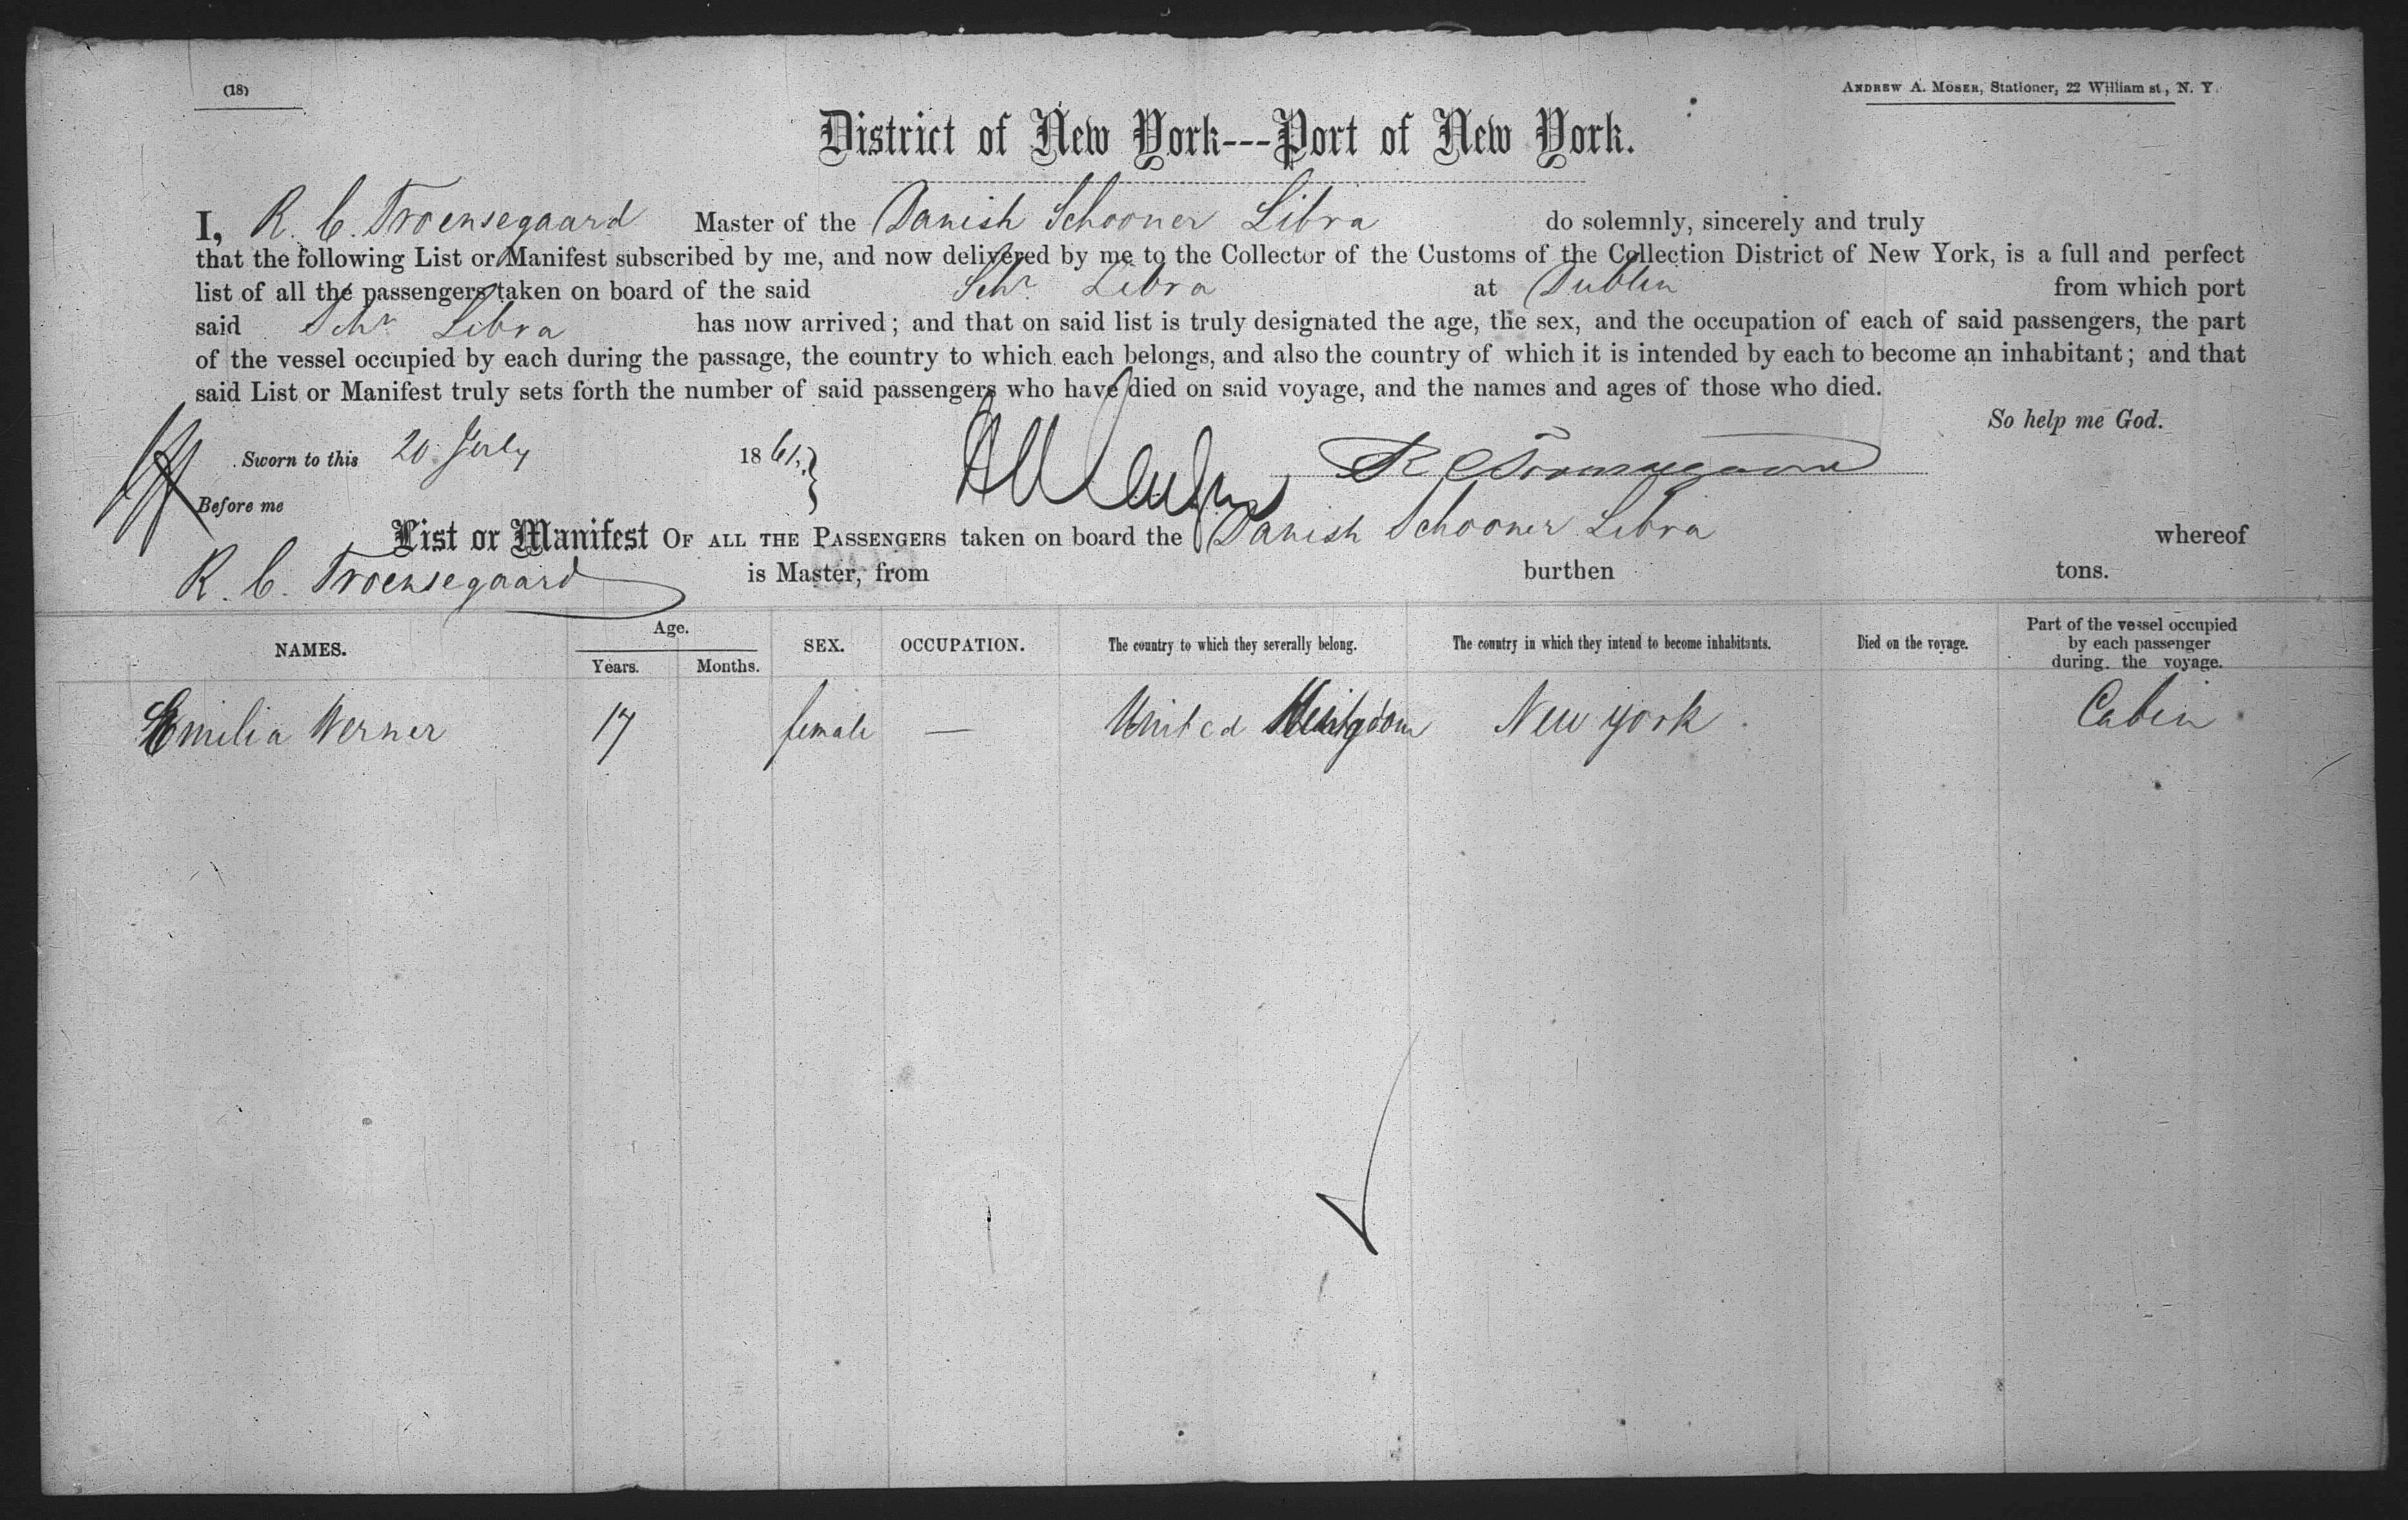 (18)
ANDREW A. MOSER, Stationer, 22 William st, N. Y.
District of New York---Port of New York.
I, R. C. Troensegaard Master of the Danish Schooner Libra do solemnly, sincerely and truly
that the following List or Manifest subscribed by me, and now delivered by me to the Collector of the Customs of the Collection District of New York, is a full and perfect
list of all the passengers taken on board of the said Schr. Libra at Dublin from which port
said Schr Libra has now arrived; and that on said list is truly designated the age, the sex, and the occupation of each of said passengers, the part
of the vessel occupied by each during the passage, the country to which each belongs, and also the country of which it is intended by each to become an inhabitant; and that
said List or Manifest truly sets forth the number of said passengers who have died on said voyage, and the names and ages of those who died.
So help me God.
Sworn to this 20 July 18 R C Troensegaard
Before me
List or Manifest OF ALL THE PASSENGERS taken on board the Danish Schooner Libra whereof
R. C. Troensegaard is Master, from burthen tons.
NAMES. Age. Years. Months. SEX. OCCUPATION. The country to which they severally belong. The country in which they intend to become inhabitants. Died on the voyage. Part of the vessel occupied by each passenger during the voyage.
Emilia Werner 17 female — United Kingdom New York Cabin